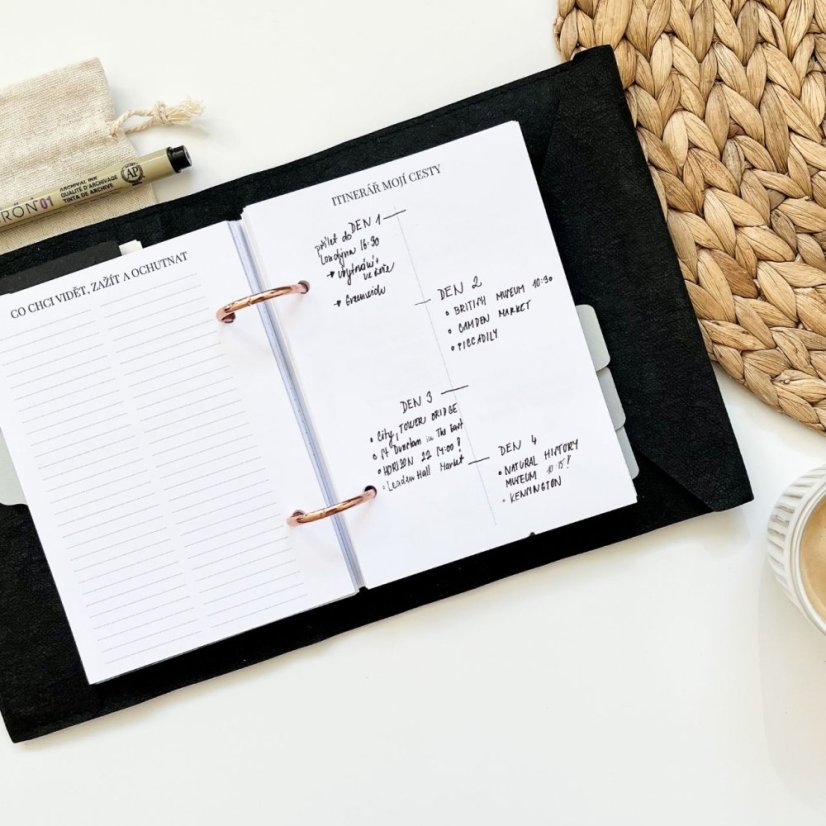 RON 01
ARCHIVAL INK
QUALITÉ D'ARCHIVAGE
TINTA DE ARCHIVE
AP
CO CHCI VIDĚT, ZAŽÍT A OCHUTNAT
ITINERÁŘ MOJÍ CESTY
DEN 1
přílet do
Londýna 16:30
Greenwich
DEN 2
• BRITISH MUSEUM 10:30
• CAMDEN MARKET
• PICCADILY
DEN 3
• City, TOWER BRIDGE
• St Dunstan in The East
• HORIZON 22 14:00!
• Leaden Hall Market
DEN 4
• NATURAL HISTORY
MUSEUM 10:15!
• KENSINGTON